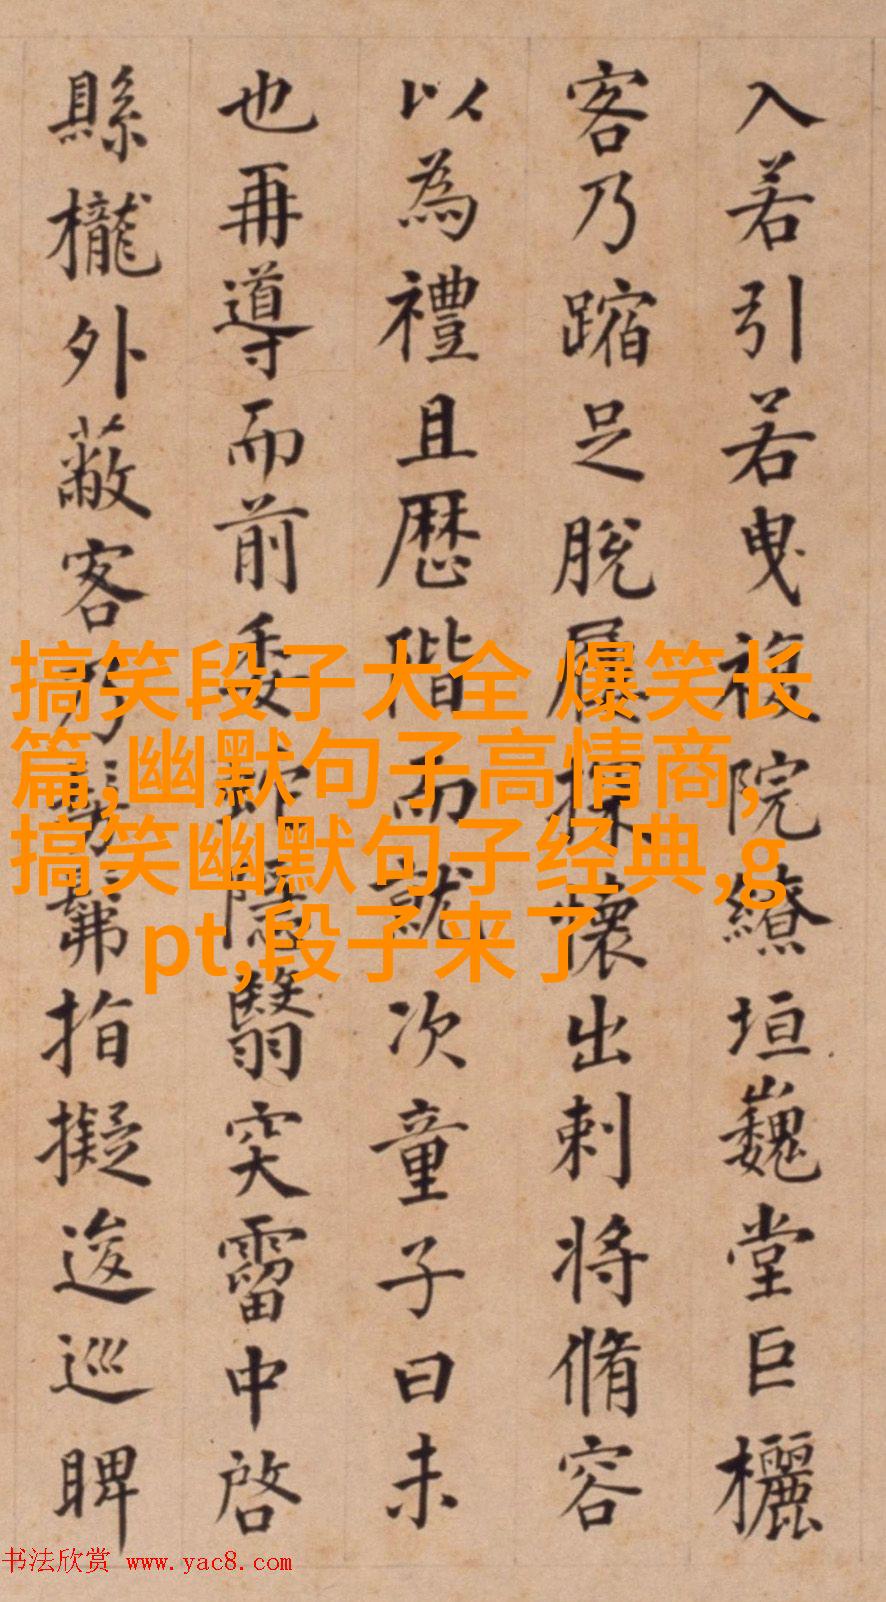 入若引若曳複院繚垣巍堂巨欐
客乃蹜足脫屨探懷出剌將脩容
以為禮且歷階而就次童子曰未
也再導而前委蛇隱翳突霤中啓
縣櫳外蔽客乃髣髴指擬逡巡睥
搞笑段子大全 爆笑长
篇,幽默句子高情商,
搞笑幽默句子经典,g
pt,段子来了
书法欣赏 www.yac8.com